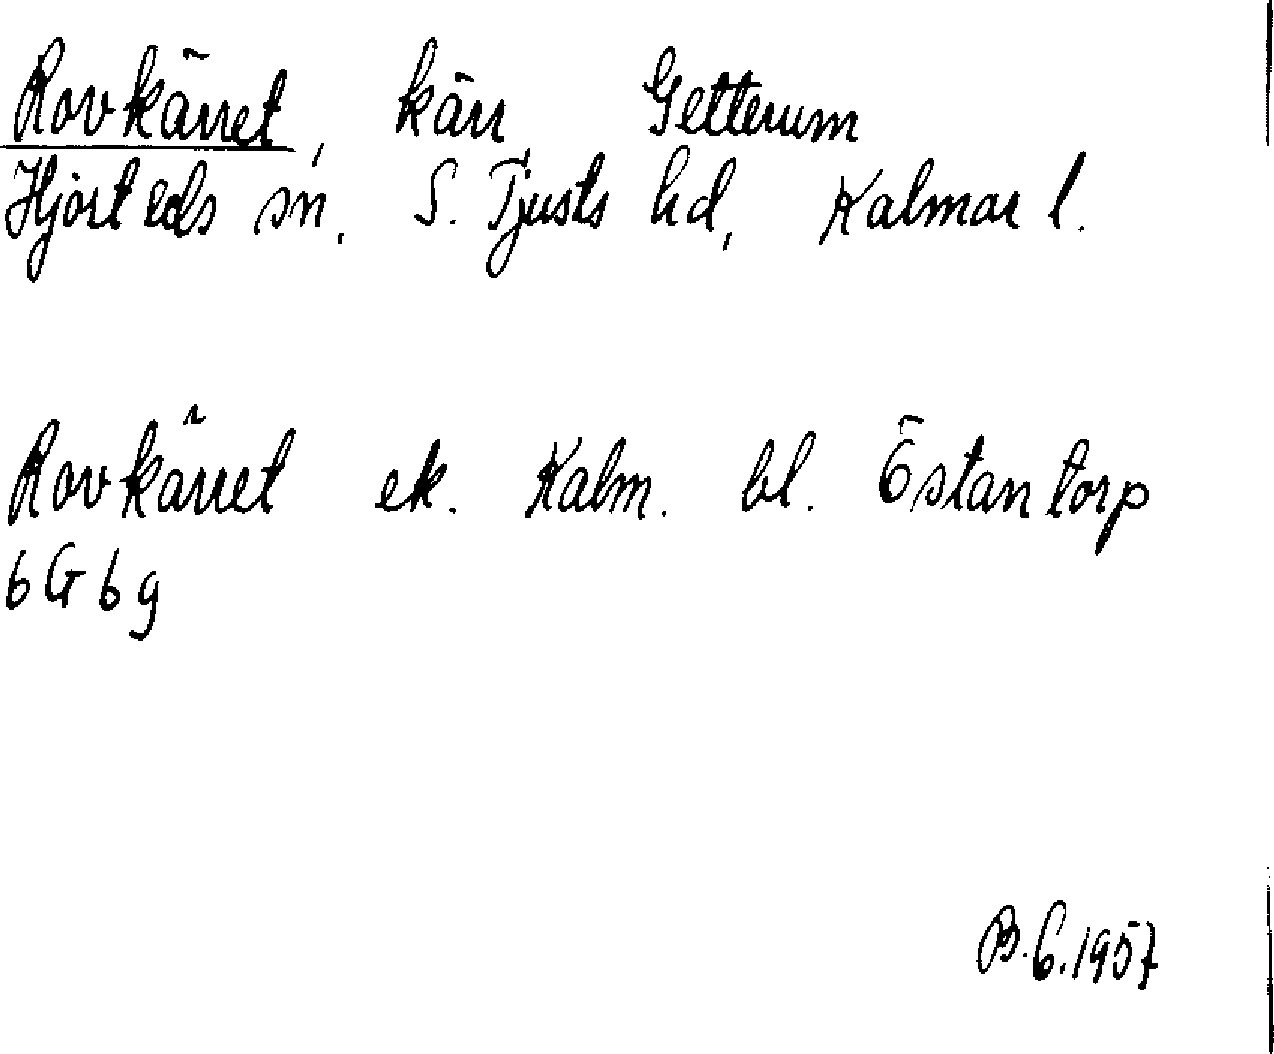 Rovkärret, kärr, Getterum
Hjorteds sn, S. Tjusts hd, Kalmar l.
Rovkärret ek. Kalm. bl. Östantorp
6G6g
B.G. 1957